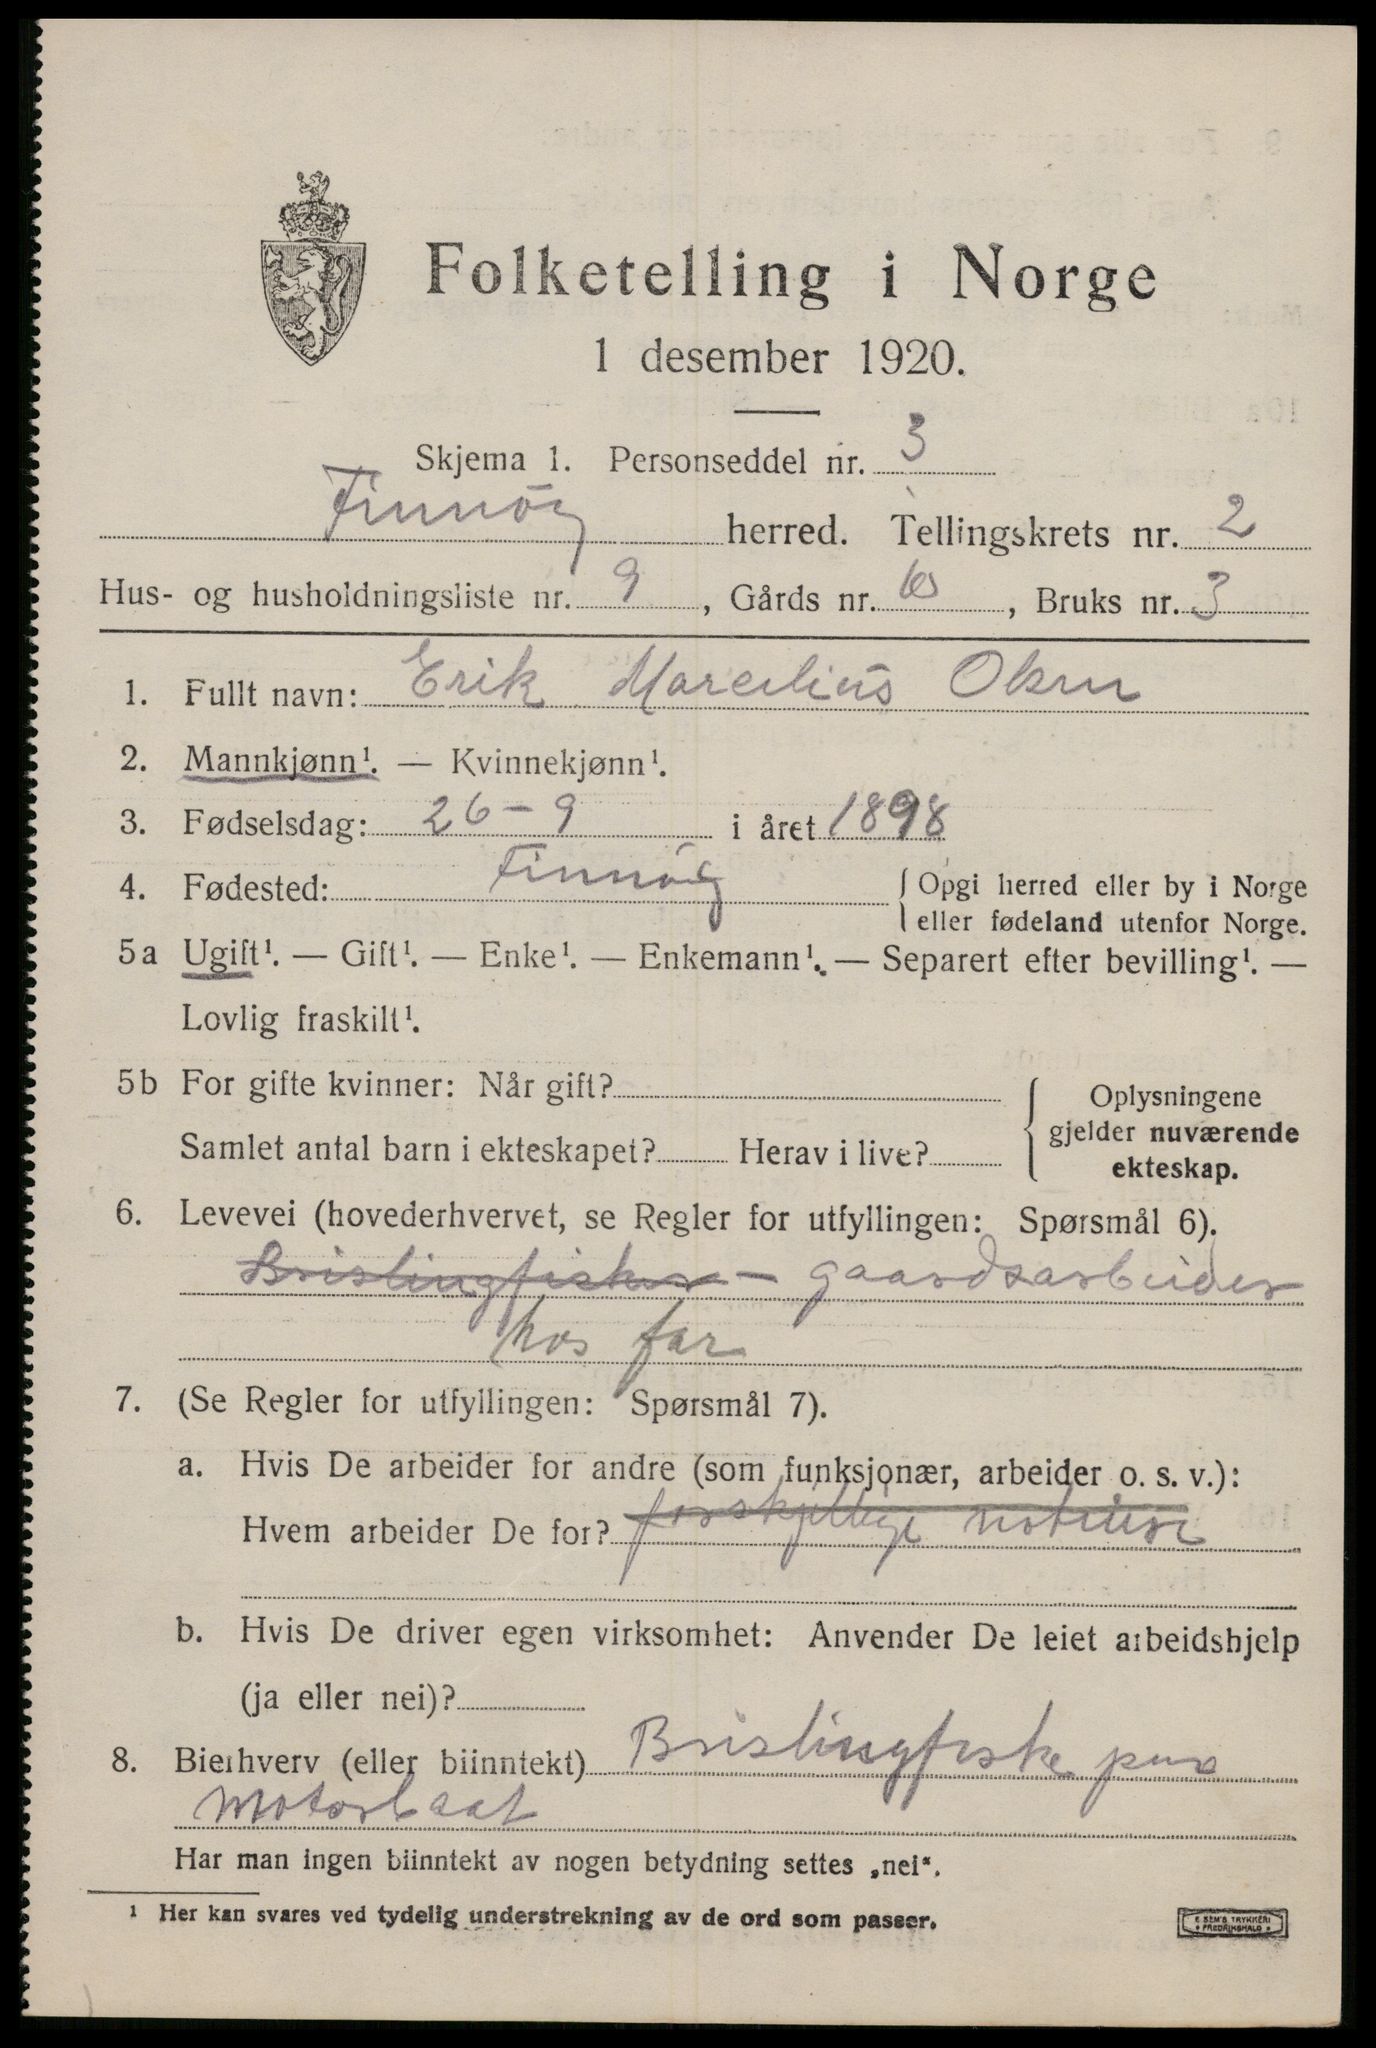 Folketelling i Norge
1 desember 1920.
Skjema 1. Personseddel nr. 3
Finnöy herred. Tellingskrets nr. 2
Hus- og husholdningsliste nr. 9, Gårds nr. , Bruks nr. 3
1. Fullt navn: Erik Marelius Olsen
2. Mannkjønn¹. — Kvinnekjønn¹.
3. Fødselsdag: 26-9 i året 1898
4. Fødested: Finnöy { Opgi herred eller by i Norge
eller fødeland utenfor Norge.
5a Ugift¹. — Gift¹. — Enke¹. — Enkemann¹. — Separert efter bevilling¹. —
Lovlig fraskilt¹.
5b For gifte kvinner: Når gift? { Oplysningene
gjelder nuværende
Samlet antal barn i ekteskapet? Herav i live?
ekteskap.
6. Levevei (hovederhvervet, se Regler for utfyllingen: Spørsmål 6).
Brislingfisker - gaardsarbeider
hos far
7. (Se Regler for utfyllingen: Spørsmål 7).
a. Hvis De arbeider for andre (som funksjonær, arbeider o. s. v.):
Hvem arbeider De for? forskjellige noteiere
b. Hvis De driver egen virksomhet: Anvender De leiet arbeidshjelp
(ja eller nei)?
8. Bierhverv (eller biinntekt) Brislingfiske paa
Motorbaat
Har man ingen biinntekt av nogen betydning settes „nei“.
¹ Her kan svares ved tydelig understrekning av de ord som passer.
E. SEM'S TRYKKERI
FREDRIKSHALD